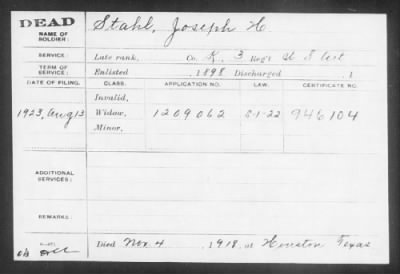 DEAD
NAME OF SOLDIER: Stahl, Joseph H.
SERVICE: Late rank, Co. K, 3 Reg't
TERM OF SERVICE: Enlisted , 1898 Discharged , 1
DATE OF FILING. CLASS. APPLICATION NO. LAW. CERTIFICATE NO.
Invalid,
1923, Aug 13 Widow, 1209062 5-1-22 946104
Minor,
ADDITIONAL SERVICES:
REMARKS:
Died Nov. 4 , 1918, at Houston Texas